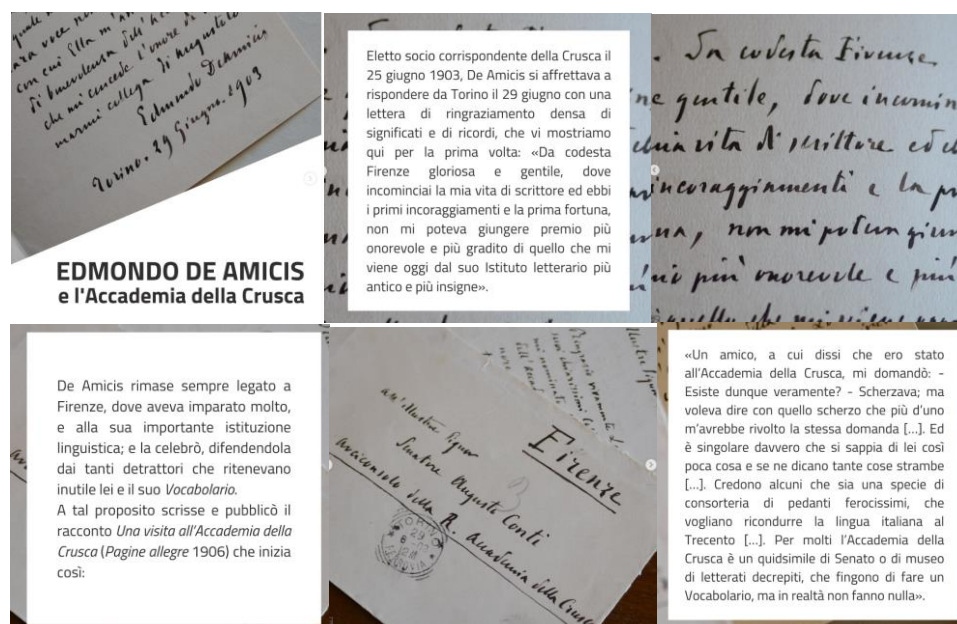 marmi collega di Augusto
Edmondo De Amicis
Torino. 29 Giugno. 1903
EDMONDO DE AMICIS
e l'Accademia della Crusca
Eletto socio corrispondente della Crusca il
25 giugno 1903, De Amicis si affrettava a
rispondere da Torino il 29 giugno con una
lettera di ringraziamento densa di
significati e di ricordi, che vi mostriamo
qui per la prima volta: «Da codesta
Firenze gloriosa e gentile, dove
incominciai la mia vita di scrittore ed ebbi
i primi incoraggiamenti e la prima fortuna,
non mi poteva giungere premio più
onorevole e più gradito di quello che mi
viene oggi dal suo Istituto letterario più
antico e più insigne».
Da codesta Firenze
gentile, dove incomin
vita di scrittore ed e
incoraggiamenti e la pr
non mi poteva giun
più onorevole e più
quello che mi viene
De Amicis rimase sempre legato a
Firenze, dove aveva imparato molto,
e alla sua importante istituzione
linguistica; e la celebrò, difendendola
dai tanti detrattori che ritenevano
inutile lei e il suo Vocabolario.
A tal proposito scrisse e pubblicò il
racconto Una visita all'Accademia della
Crusca (Pagine allegre 1906) che inizia
così:
all'illustre Signor
Senatore Augusto Conti
Arciconsolo della R. Accademia della Crusca
Firenze
TORINO
«Un amico, a cui dissi che ero stato
all'Accademia della Crusca, mi domandò: -
Esiste dunque veramente? - Scherzava; ma
voleva dire con quello scherzo che più d'uno
m'avrebbe rivolto la stessa domanda [...]. Ed
è singolare davvero che si sappia di lei così
poca cosa e se ne dicano tante cose strambe
[...]. Credono alcuni che sia una specie di
consorteria di pedanti ferocissimi, che
vogliano ricondurre la lingua italiana al
Trecento [...]. Per molti l'Accademia della
Crusca è un quidsimile di Senato o di museo
di letterati decrepiti, che fingono di fare un
Vocabolario, ma in realtà non fanno nulla».